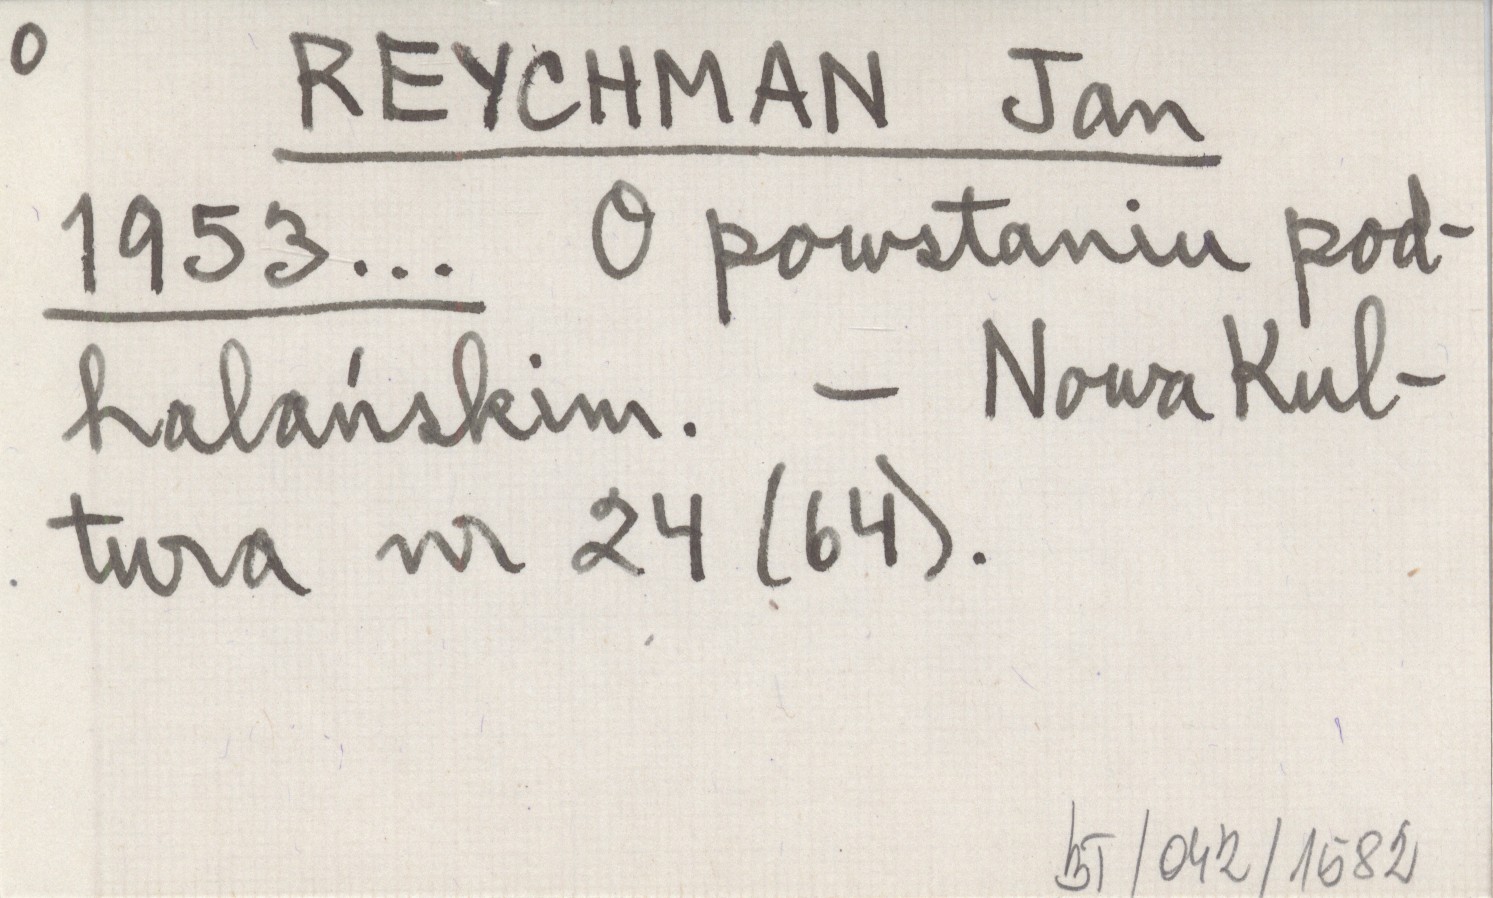 O
REYCHMAN Jan
1953... O powstaniu pod-
halańskim. – Nowa Kul-
tura nr 24 (64).
/042/1582